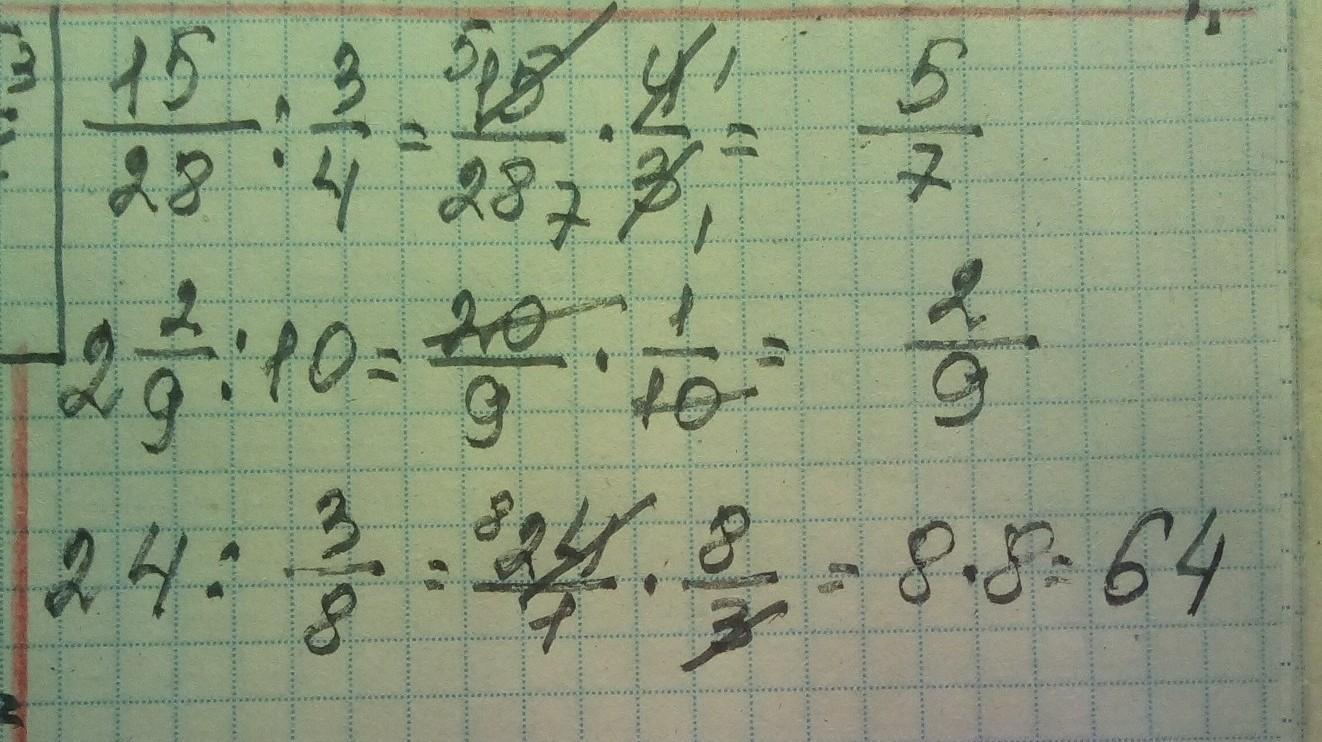 15/28 : 3/4 = ⁵15/28₇ · 4¹/3₁ = 5/7
2 2/9 : 10 = 20/9 · 1/10 = 2/9
24 : 3/8 = ⁸24/1 · 8/3 = 8·8 = 64